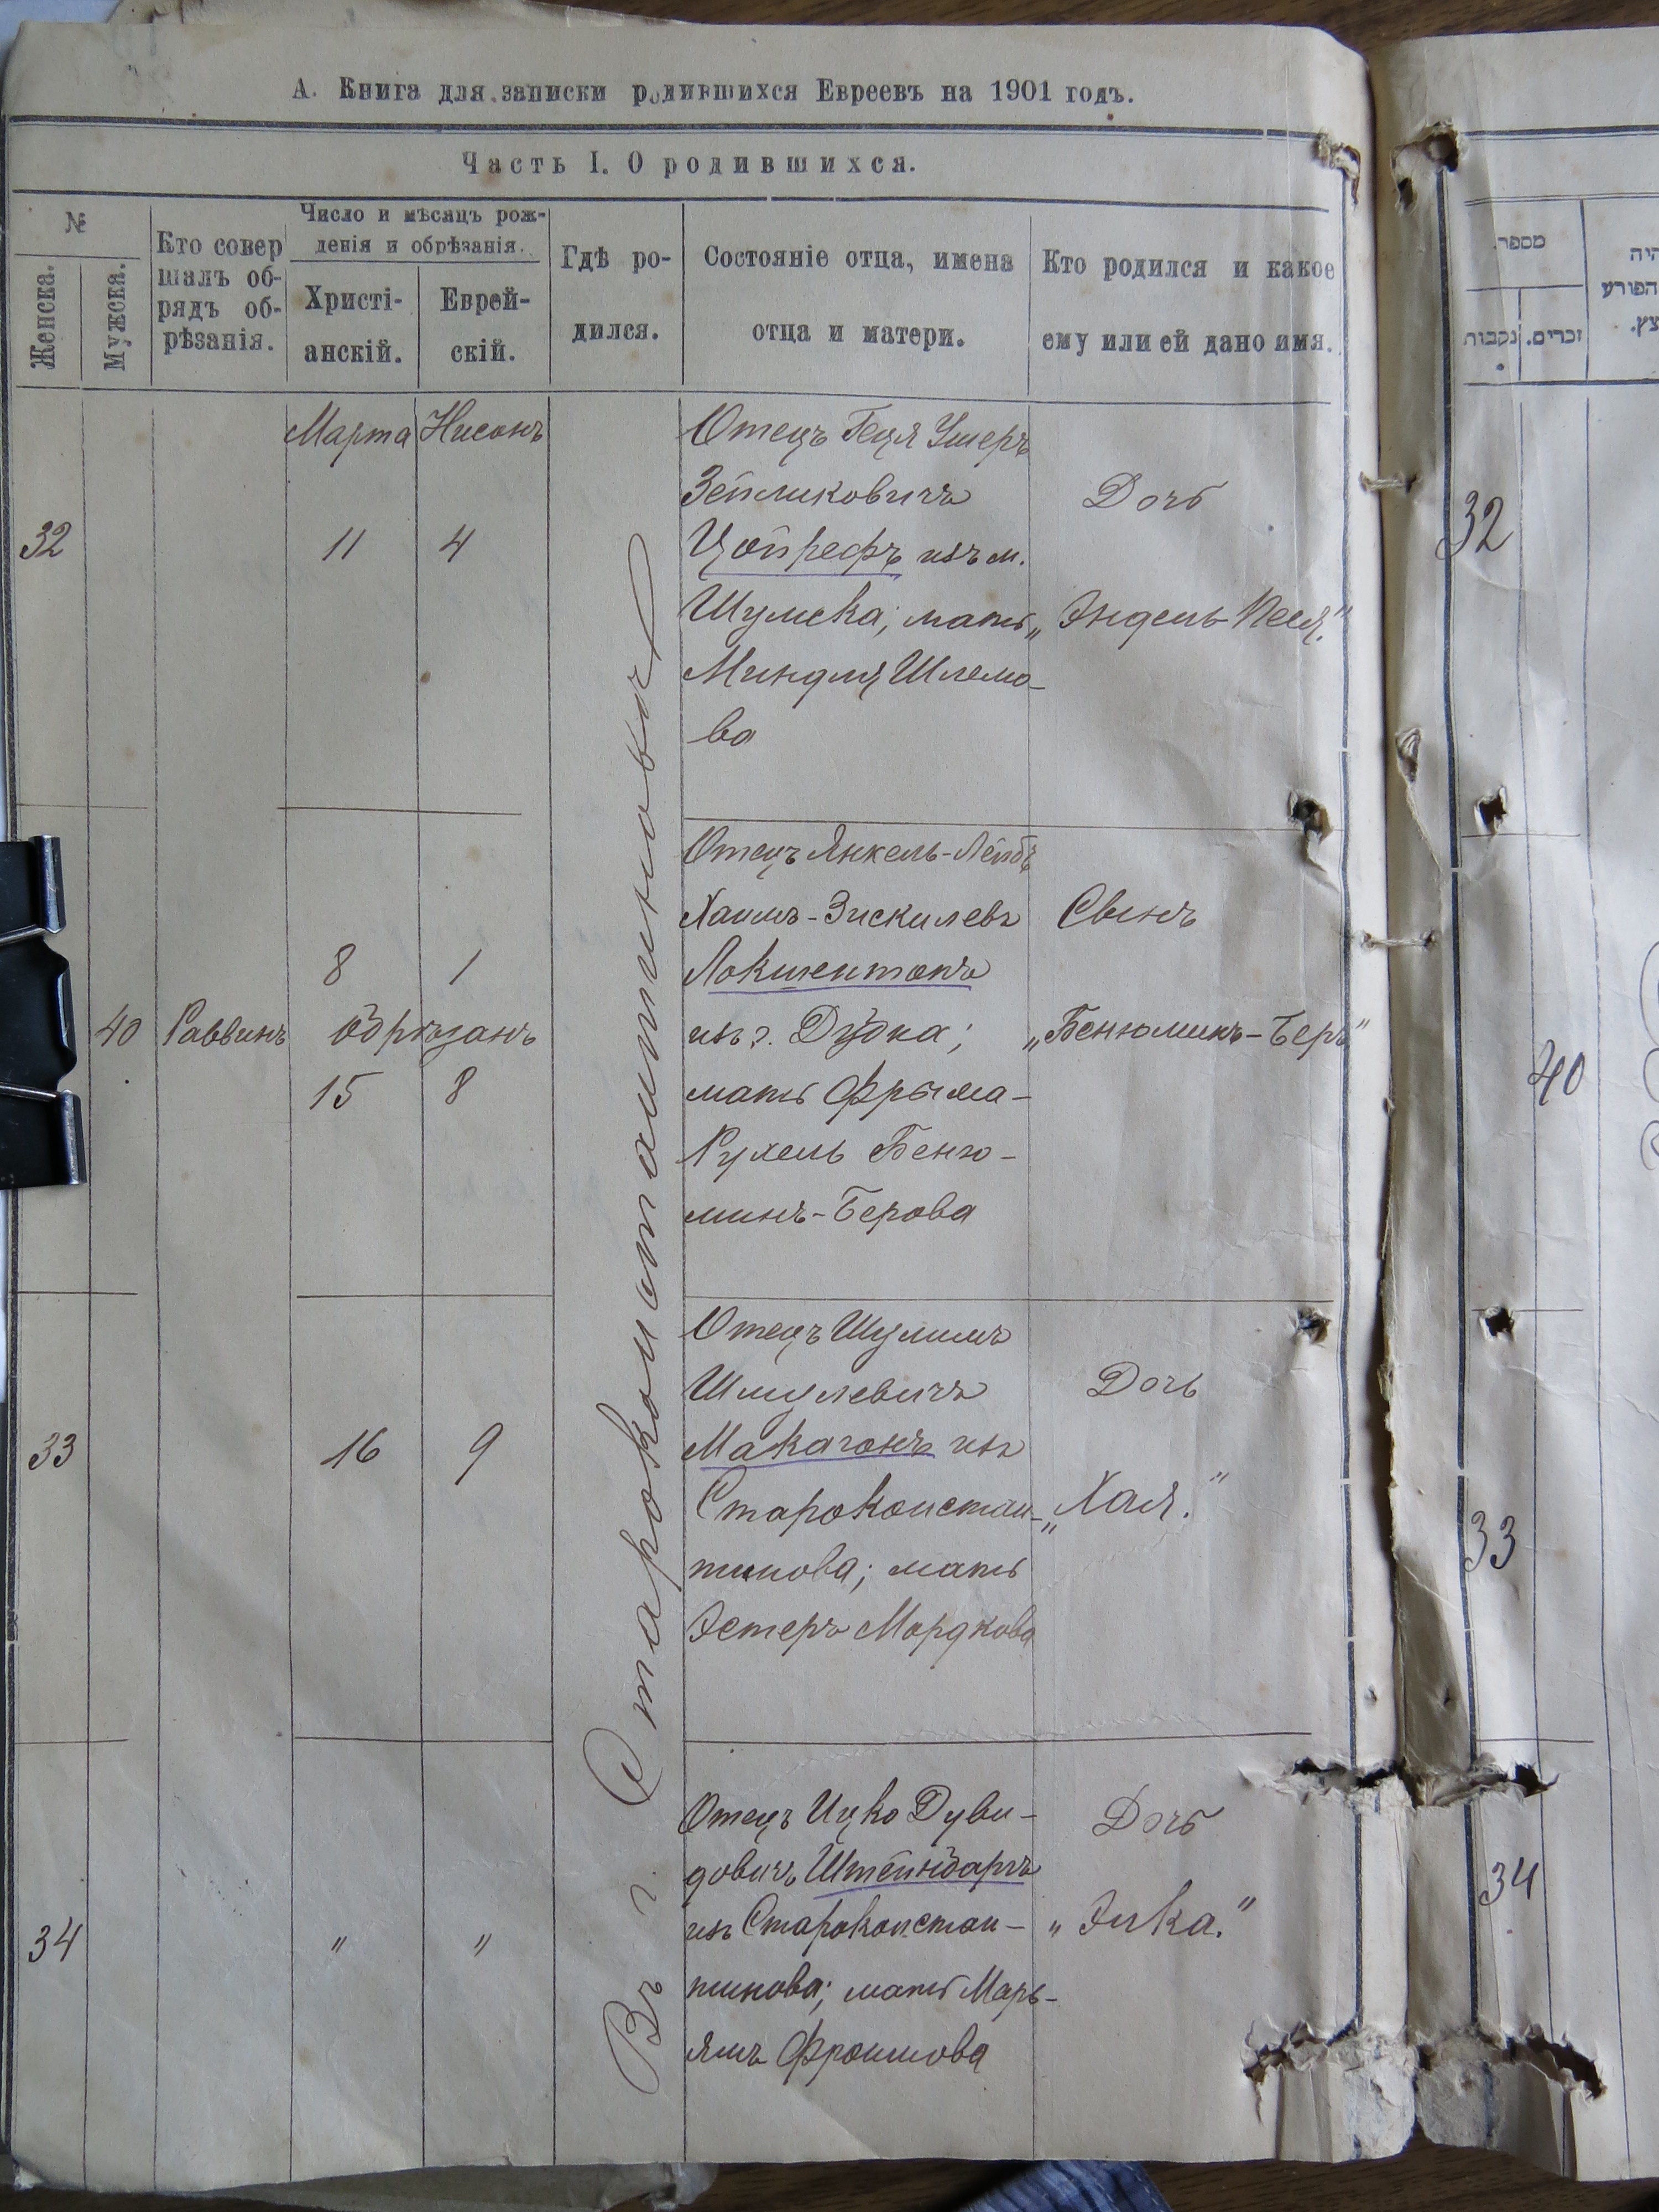 А. Книга для записки родившихся Евреевъ на 1901 годъ.
Часть I. О родившихся.
№
Женска.
Мужска.
Кто совер
шалъ об-
рядъ об-
рѣзанія.
Число и мѣсяцъ рож-
денія и обрѣзанія.
Христі-
анскій.
Еврей-
скій.
Гдѣ ро-
дился.
Состояніе отца, имена
отца и матери.
Кто родился и какое
ему или ей дано имя.
Въ г. Староконстантиновѣ
Марта Нисонъ
32
11 4
Отецъ Геця Ушеръ
Зейликовичъ
Цойрефъ изъ м.
Шумска; мать
Миндля Шлемо-
ва
Дочь
„Эндель Песя."
40 Раввинъ
8 1
обрѣзанъ
15 8
Отецъ Янкель-Лейбъ
Хаимъ-Зискилевъ
Локшентопъ
изъ г. Дубна;
мать Фрыма-
Рухель Беню-
минъ-Берова
Сынъ
„Бенюминъ-Беръ"
33
16 9
Отецъ Шулимъ
Шмулевичъ
Макагонъ изъ
Староконстан-
тинова; мать
Эстеръ Мордкова
Дочь
„Хая."
34
" "
Отецъ Ицко Дуви-
довичъ Штейнбаргъ
изъ Староконстан-
тинова; мать Марь-
ямъ Фроимова
Дочь
„Элка."
מספר.
זכרים.
נקבות
היה
הפורע
32
40
33
34